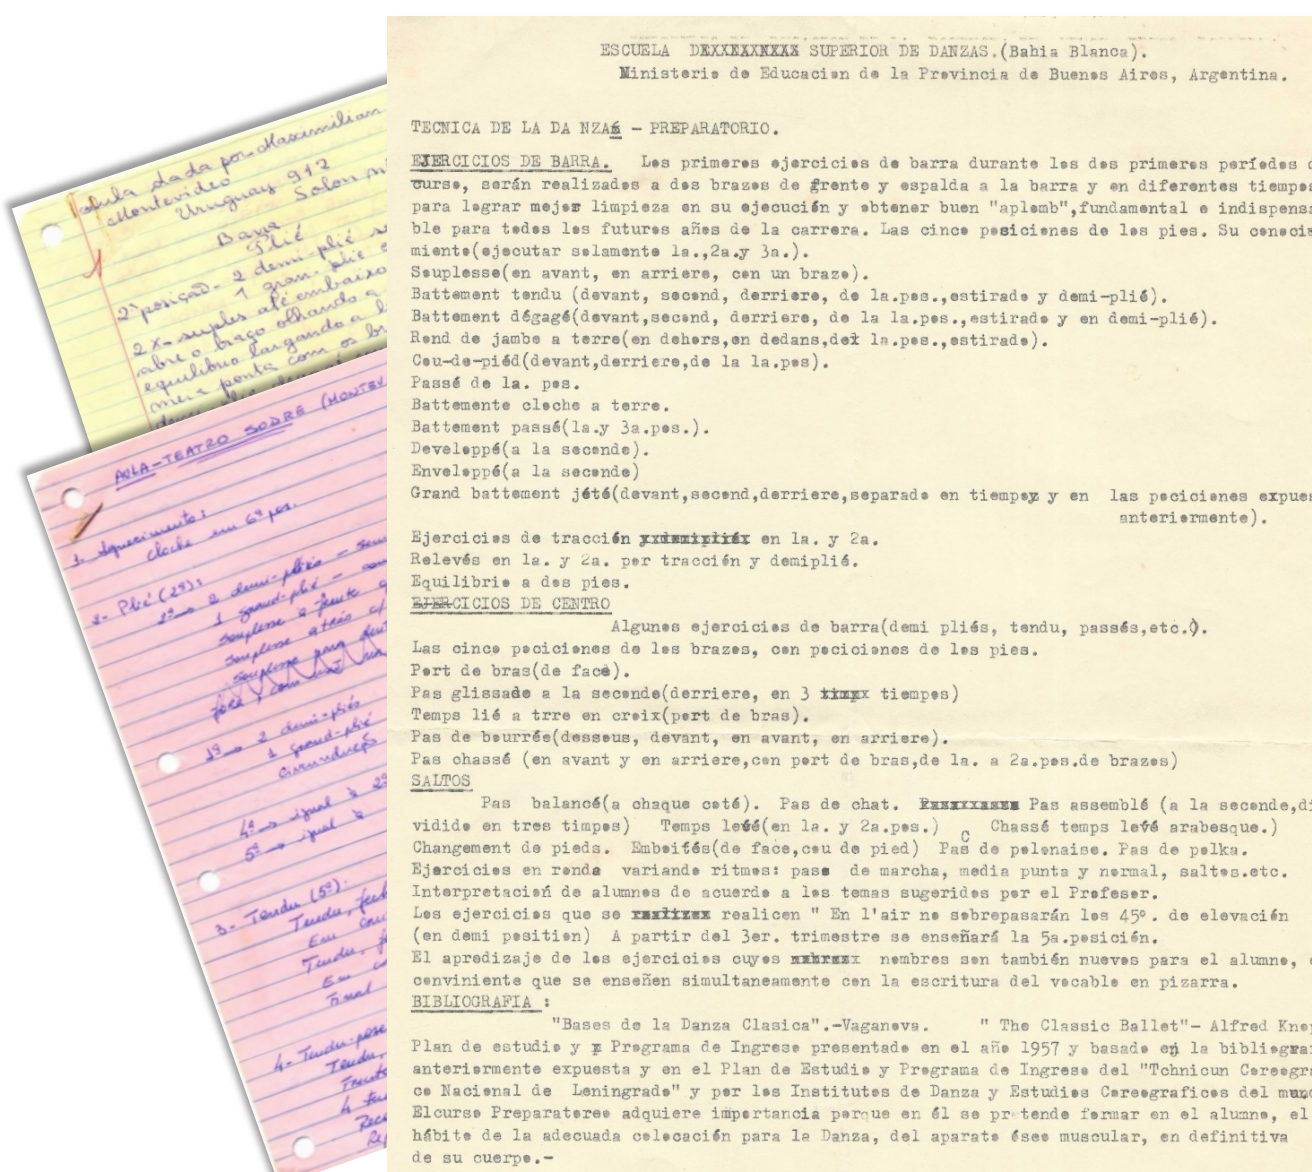 Aula dada por Maximilian
Montevideo
Uruguay 912
Salon
Barra
Plié
2ª posição - 2 demi-plié
1 gran-plié
2x - suples até embaixo
abre o braço olhando a
equilíbrio largando a
meia ponta com os
AULA-TEATRO SODRE (MONTEV
1. Aquecimento:
cloche em 6ª pos.
2- Plié (2ª):
1º → 2 demi-pliés
1 grand-plié
souplesse à frente
souplesse atrás
souplesse para
1ª → 2 demi-pliés
1 grand-plié
4ª → igual à 2ª
5ª → igual à
3- Tendu (5ª):
Tendu,
Em
Tendu,
Em
Final
4- Tendu-
Tendu,
ESCUELA DEXXEXXNXXX SUPERIOR DE DANZAS.(Bahia Blanca).
Ministerio de Educacion de la Provincia de Buenos Aires, Argentina.
TECNICA DE LA DA NZAS - PREPARATORIO.
EJERCICIOS DE BARRA. Los primeros ejercicios de barra durante los dos primeros períodos
curso, serán realizados a dos brazos de frente y espalda a la barra y en diferentes tiempos
para lograr mejor limpieza en su ejecución y obtener buen "aplomb",fundamental e indispensa
ble para todos los futuros años de la carrera. Las cinco posiciones de los pies. Su conoci
miento(ejecutar solamente 1a.,2a.y 3a.).
Souplesse(en avant, en arriere, con un brazo).
Battement tendu (devant, second, derriere, de 1a.pos.,estirado y demi-plié).
Battement dégagé(devant,second, derriere, de la 1a.pos.,estirado y en demi-plié).
Rond de jambe a terre(en dehors,en dedans,de 1a.pos.,estirado).
Cou-de-piéd(devant,derriere,de la 1a.pos).
Passé de 1a. pos.
Battemente cloche a terre.
Battement passé(1a.y 3a.pos.).
Developpé(a la seconde).
Enveloppé(a la seconde)
Grand battement jété(devant,second,derriere,separado en tiempos y en las pociciones expues
anteriormente).
Ejercicios de tracción yxdemixpliéx en 1a. y 2a.
Relevés en 1a. y 2a. por tracción y demiplié.
Equilibrio a dos pies.
EJERCICIOS DE CENTRO
Algunos ejercicios de barra(demi pliés, tendu, passés,etc.).
Las cinco pociciones de los brazos, con pociciones de los pies.
Port de bras(de face).
Pas glissade a la seconde(derriere, en 3 tiempos)
Temps lié a trre en croix(port de bras).
Pas de bourrée(dessous, devant, en avant, en arriere).
Pas chassé (en avant y en arriere,con port de bras,de 1a. a 2a.pos.de brazos)
SALTOS
Pas balancé(a chaque coté). Pas de chat. Pas assemblé (a la seconde,di
vidido en tres timpos) Temps levé(en 1a. y 2a.pos.) Chassé temps levé arabesque.)
Changement de pieds. Emboités(de face,cou de pied) Pas de polonaise. Pas de polka.
Ejercicios en ronda variando ritmos: paso de marcha, media punta y normal, saltos.etc.
Interpretación de alumnos de acuerdo a los temas sugeridos por el Profesor.
Los ejercicios que se realicen " En l'air no sobrepasarán los 45º. de elevación
(en demi position) A partir del 3er. trimestre se enseñará la 5a.posición.
El apredizaje de los ejercicios cuyos nombres son también nuevos para el alumno,
conviniente que se enseñen simultaneamente con la escritura del vocable en pizarra.
BIBLIOGRAFIA :
"Bases de la Danza Clasica".-Vaganova. " The Classic Ballet"- Alfred Knop
Plan de estudio y Programa de Ingreso presentado en el año 1957 y basado en la bibliograf
anteriormente expuesta y en el Plan de Estudio y Programa de Ingreso del "Tchnicun Coreogra
co Nacional de Leningrado" y por los Institutos de Danza y Estudios Coreograficos del mundo
Elcurso Preparatoreo adquiere importancia porque en él se pretende formar en el alumno, el
hábito de la adecuada colocación para la Danza, del aparato óseo muscular, en definitiva
de su cuerpo.-